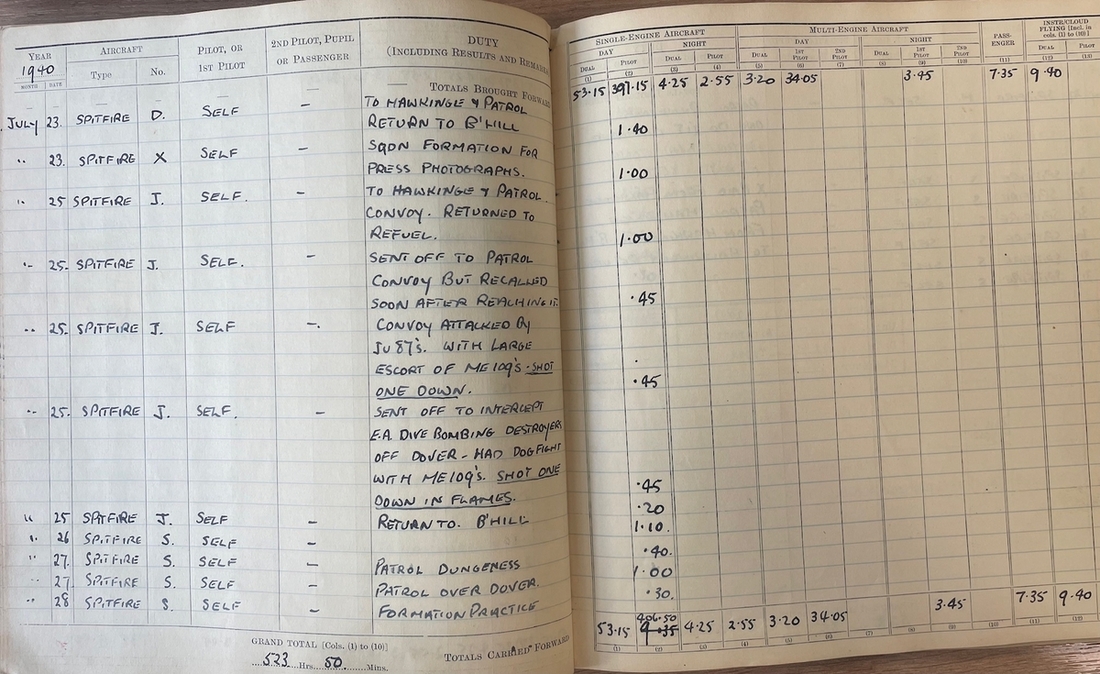 YEAR
1940
AIRCRAFT
PILOT, OR
1ST PILOT
2ND PILOT, PUPIL
OR PASSENGER
DUTY
(INCLUDING RESULTS AND REMARKS
MONTH DATE
Type No.
TOTALS BROUGHT FORWARD
JULY 23. SPITFIRE D. SELF — TO HAWKINGE & PATROL
RETURN TO B'HILL
" 23. SPITFIRE X SELF — SQDN FORMATION FOR
PRESS PHOTOGRAPHS.
" 25 SPITFIRE J. SELF. — TO HAWKINGE & PATROL
CONVOY. RETURNED TO
REFUEL.
" 25. SPITFIRE J. SELF. — SENT OFF TO PATROL
CONVOY BUT RECALLED
SOON AFTER REACHING IT.
" 25. SPITFIRE J. SELF —. CONVOY ATTACKED BY
JU 87's. WITH LARGE
ESCORT OF ME109's. SHOT
ONE DOWN.
" 25. SPITFIRE J. SELF. — SENT OFF TO INTERCEPT
E.A. DIVE BOMBING DESTROYERS
OFF DOVER - HAD DOGFIGHT
WITH ME109's. SHOT ONE
DOWN IN FLAMES.
" 25 SPITFIRE J. SELF — RETURN TO. B'HILL
" 26 SPITFIRE S. SELF —
" 27. SPITFIRE S. SELF — PATROL DUNGENESS
" 27. SPITFIRE S. SELF — PATROL OVER DOVER.
" 28 SPITFIRE S. SELF — FORMATION PRACTICE
GRAND TOTAL [Cols. (1) to (10)]
523 Hrs. 50 Mins.
TOTALS CARRIED FORWARD
SINGLE-ENGINE AIRCRAFT MULTI-ENGINE AIRCRAFT PASS-ENGER INSTR/CLOUD
FLYING [Incl. in
cols. (1) to (10)]
DAY NIGHT DAY NIGHT
DUAL PILOT DUAL PILOT DUAL 1ST PILOT 2ND PILOT DUAL 1ST PILOT 2ND PILOT DUAL PILOT
(1) (2) (3) (4) (5) (6) (7) (8) (9) (10) (11) (12) (13)
53.15 397.15 4.25 2.55 3.20 34.05 3.45 7.35 9.40
1.40
1.00
1.00
.45
.45
.45
.20
1.10.
.40.
1.00
.30.
406.50
53.15 4.25 2.55 3.20 34.05 3.45 7.35 9.40
(1) (2) (3) (4) (5) (6) (7) (8) (9) (10) (11) (12)